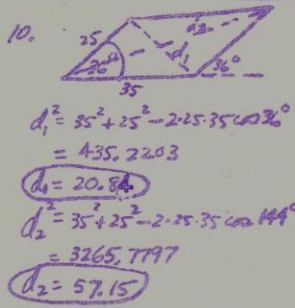 10.
25
d₂
d₁
36°
36°
35
d₁² = 35² + 25² - 2·25·35 cos 36°
= 435.2203
d₁ = 20.84
d₂² = 35² + 25² - 2·25·35 cos 144°
= 3265.7797
d₂ = 57.15